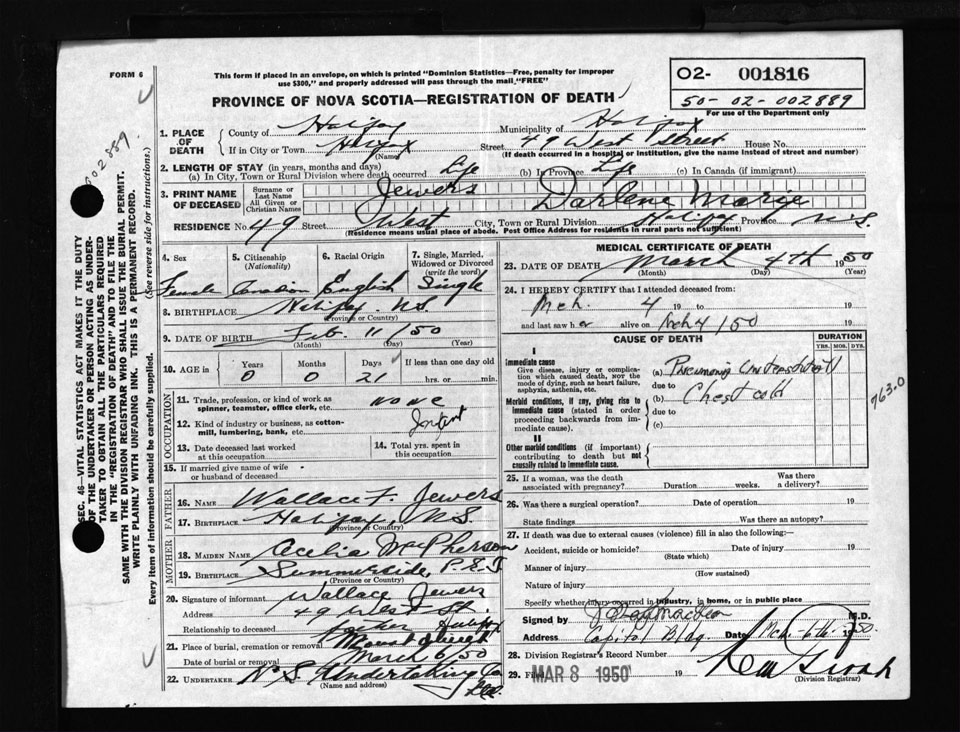 FORM 6
This form if placed in an envelope, on which is printed "Dominion Statistics—Free, penalty for improper
use $300," and properly addressed will pass through the mail "FREE"
PROVINCE OF NOVA SCOTIA—REGISTRATION OF DEATH
02- 001816
50-02-002889
For use of the Department only
002889
SEC. 46—VITAL STATISTICS ACT MAKES IT THE DUTY
OF THE UNDERTAKER OR PERSON ACTING AS UNDER-
TAKER TO OBTAIN ALL THE PARTICULARS REQUIRED
IN THE "REGISTRATION OF DEATH" AND TO FILE THE
SAME WITH THE DIVISION REGISTRAR WHO SHALL ISSUE THE BURIAL PERMIT.
WRITE PLAINLY WITH UNFADING INK. THIS IS A PERMANENT RECORD.
Every item of information should be carefully supplied. (See reverse side for instructions.)
1. PLACE OF DEATH
County of Halifax Municipality of Halifax
If in City or Town Halifax Street 49 West Street House No.
(Name) (If death occurred in a hospital or institution, give the name instead of street and number)
2. LENGTH OF STAY (in years, months and days)
(a) In City, Town or Rural Division where death occurred Life (b) In Province Life (c) In Canada (if immigrant)
3. PRINT NAME OF DECEASED
Surname or Last Name Jewers
All Given or Christian Names Darlene Marie
RESIDENCE No. 49 Street West City, Town or Rural Division Halifax Province N.S.
(Residence means usual place of abode. Post Office Address for residents in rural parts not sufficient)
4. Sex 5. Citizenship (Nationality) 6. Racial Origin 7. Single, Married, Widowed or Divorced (write the word)
Female Canadian English Single
8. BIRTHPLACE Halifax N.S.
(Province or Country)
9. DATE OF BIRTH Feb. 11/50
(Month) (Day) (Year)
10. AGE in Years Months Days If less than one day old
0 0 21 hrs. or min.
OCCUPATION
11. Trade, profession, or kind of work as spinner, teamster, office clerk, etc. none
12. Kind of industry or business, as cotton-mill, lumbering, bank, etc. Infant
13. Date deceased last worked at this occupation
14. Total yrs. spent in this occupation
15. If married give name of wife or husband of deceased
FATHER
16. NAME Wallace F. Jewers
17. BIRTHPLACE Halifax, N.S.
(Province or Country)
MOTHER
18. MAIDEN NAME Acelia MacPherson
19. BIRTHPLACE Summerside, P.E.I
(Province or Country)
20. Signature of informant Wallace Jewers
Address 49 West St. Halifax
Relationship to deceased father
21. Place of burial, cremation or removal
Date of burial or removal March 6/50
22. UNDERTAKER N. S. Undertaking Co Ltd.
(Name and address)
MEDICAL CERTIFICATE OF DEATH
23. DATE OF DEATH March 4th 1950
(Month) (Day) (Year)
24. I HEREBY CERTIFY that I attended deceased from:
Mch. 4 19 to 19
and last saw her alive on Mch 4/50 19
CAUSE OF DEATH
DURATION
YRS. MOS. DYS.
I
Immediate cause
Give disease, injury or complication which caused death, NOT the mode of dying, such as heart failure, asphyxia, asthenia, etc.
(a) Pneumonia
due to
Morbid conditions, if any, giving rise to immediate cause (stated in order proceeding backwards from immediate cause).
(b) Chest cold
due to
(c)
763.0
II
Other morbid conditions (if important) contributing to death but not causally related to immediate cause.
25. If a woman, was the death associated with pregnancy? Duration weeks. Was there a delivery?
26. Was there a surgical operation? Date of operation 19
State findings Was there an autopsy?
27. If death was due to external causes (violence) fill in also the following:
Accident, suicide or homicide? Date of injury 19
(State which)
Manner of injury
(How sustained)
Nature of injury
Specify whether injury occurred in industry, in home, or in public place
Signed by M.D.
Address Capitol Bldg. Date Mch. 6th 1950.
28. Division Registrar's Record Number
29. Filed MAR 8 1950 19
(Division Registrar)